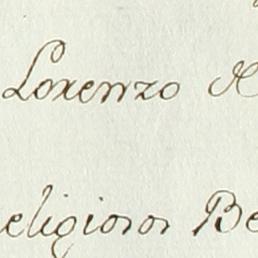 Lorenzo
religiosos Be